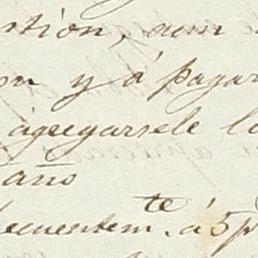 stion, aun
on y á pagar
ágregarsele l
año
secuentem.te á 5 p